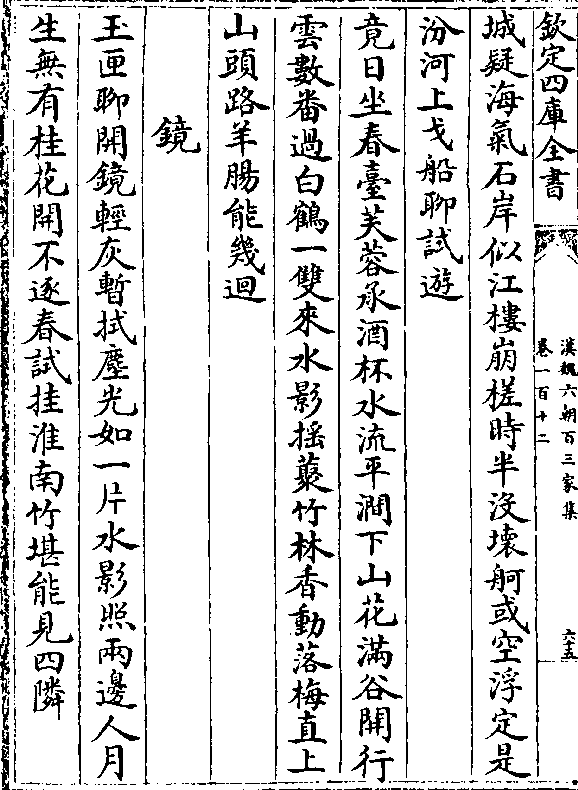 欽定四庫全書
漢魏六朝百三家集
卷一百十二
六十五
城疑海氣石岸似江樓崩槎時半沒壞舸或空浮定是
汾河上戈船聊試遊
竟日坐春臺芙蓉承酒杯水流平澗下山花滿谷開行
雲數番過白鶴一雙來水影揺藂竹林香動落梅直上
山頭路羊腸能幾迴
鏡
玉匣聊開鏡輕灰暫拭塵光如一片水影照兩邊人月
生無有桂花開不逐春試挂淮南竹堪能見四隣